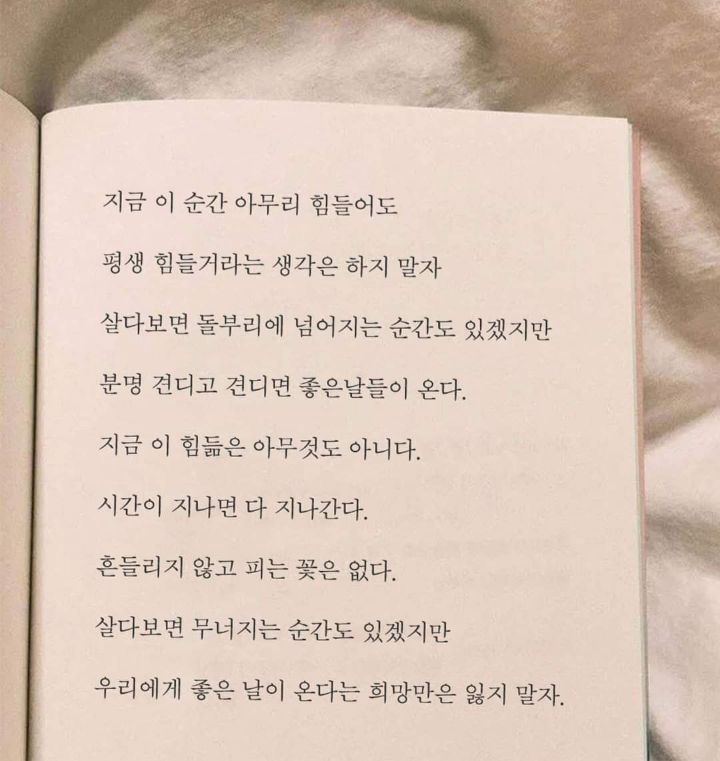 지금 이 순간 아무리 힘들어도
평생 힘들거라는 생각은 하지 말자
살다보면 돌부리에 넘어지는 순간도 있겠지만
분명 견디고 견디면 좋은날들이 온다.
지금 이 힘듦은 아무것도 아니다.
시간이 지나면 다 지나간다.
흔들리지 않고 피는 꽃은 없다.
살다보면 무너지는 순간도 있겠지만
우리에게 좋은 날이 온다는 희망만은 잃지 말자.